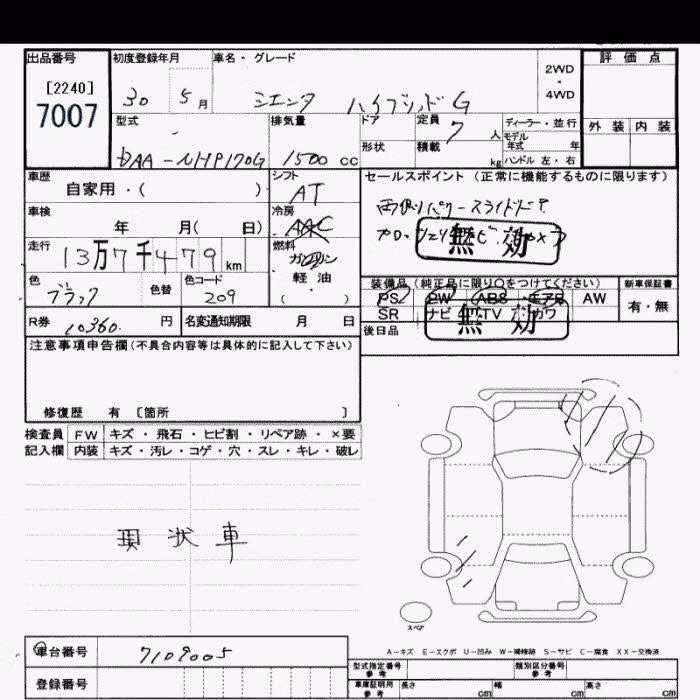 出品番号 初度登録年月 車名・グレード 評価点
[2240]
7007
30 5月 シエンタ ハイブリッド G 2WD・4WD
型式 排気量 ドア 定員 ディーラー・並行 外装 内装
7人 モデル年式 年
DAA-NHP170G 1500cc 形状 積載 kg ハンドル 左・右
車歴 シフト セールスポイント(正常に機能するものに限ります)
自家用・( ) AT
車検 冷房 両側パワースライドドア
年 月( 日) AAC
走行 燃料 無効
13万7千479km ガソリン
軽油
( ・ )
色 色替 色コード 装備品(純正品に限り○をつけてください) 新車保証書
ブラック 209 PS PW ABS エアB AW 有・無
SR ナビ TV カワ
無効
R券 10360円 名変通知期限 月 日 後日品
注意事項申告欄(不具合内容等は具体的に記入して下さい)
修復歴 有 [箇所 ]
検査員 FW キズ・飛石・ヒビ割・リペア跡・×要
記入欄 内装 キズ・汚レ・コゲ・穴・スレ・キレ・破レ
現状車
スペア
A-キズ E-エクボ U-凹み W-補修跡 S-サビ C-腐食 XX-交換済
車台番号 7109005 型式指定番号 参考 類別区分番号 参考
登録番号 車庫証明用 参考 長さ cm 幅 cm 高さ cm